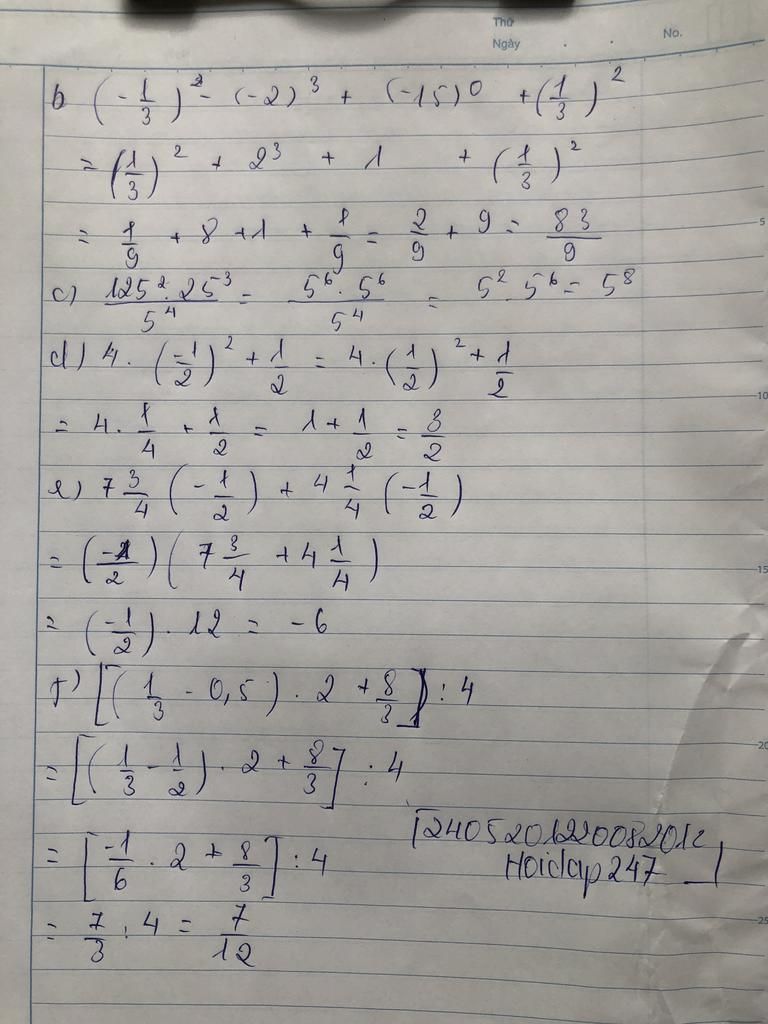 Thứ
Ngày . . No.
b (-1/3)² - (-2)³ + (-15)⁰ + (1/3)²
= (1/3)² + 2³ + 1 + (1/3)²
= 1/9 + 8 + 1 + 1/9 = 2/9 + 9 = 83/9
c) 125² . 25³/5⁴ = 5⁶ . 5⁶/5⁴ = 5² . 5⁶ = 5⁸
d) 4 . (-1/2)² + 1/2 = 4 . (1/2)² + 1/2
= 4 . 1/4 + 1/2 = 1 + 1/2 = 3/2
e) 7 3/4 (-1/2) + 4 1/4 (-1/2)
= (-1/2) (7 3/4 + 4 1/4)
= (-1/2) . 12 = -6
f) [(1/3 - 0,5) . 2 + 8/3] : 4
= [(1/3 - 1/2) . 2 + 8/3] : 4
= [-1/6 . 2 + 8/3] : 4
= 7/3 : 4 = 7/12
Hoidap247
5
10
15
20
25